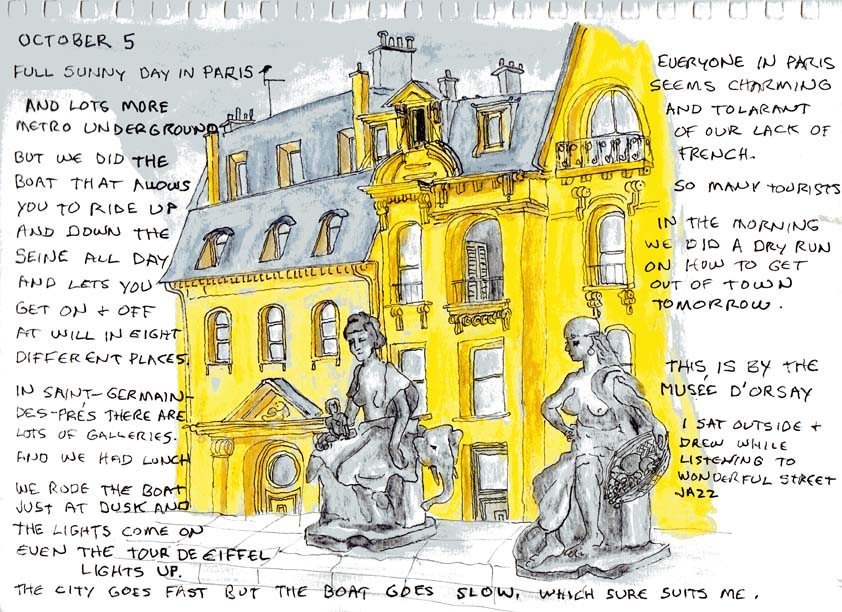 OCTOBER 5
FULL SUNNY DAY IN PARIS
AND LOTS MORE
METRO UNDERGROUND
BUT WE DID THE
BOAT THAT ALLOWS
YOU TO RIDE UP
AND DOWN THE
SEINE ALL DAY
AND LETS YOU
GET ON + OFF
AT WILL IN EIGHT
DIFFERENT PLACES.
IN SAINT-GERMAIN-
DES-PRÉS THERE ARE
LOTS OF GALLERIES.
AND WE HAD LUNCH
WE RODE THE BOAT
JUST AT DUSK AND
THE LIGHTS COME ON
EVEN THE TOUR DE EIFFEL
LIGHTS UP.
THE CITY GOES FAST BUT THE BOAT GOES SLOW, WHICH SURE SUITS ME.
EVERYONE IN PARIS
SEEMS CHARMING
AND TOLARANT
OF OUR LACK OF
FRENCH.
SO MANY TOURISTS
IN THE MORNING
WE DID A DRY RUN
ON HOW TO GET
OUT OF TOWN
TOMORROW.
THIS IS BY THE
MUSÉE D'ORSAY
I SAT OUTSIDE +
DREW WHILE
LISTENING TO
WONDERFUL STREET
JAZZ